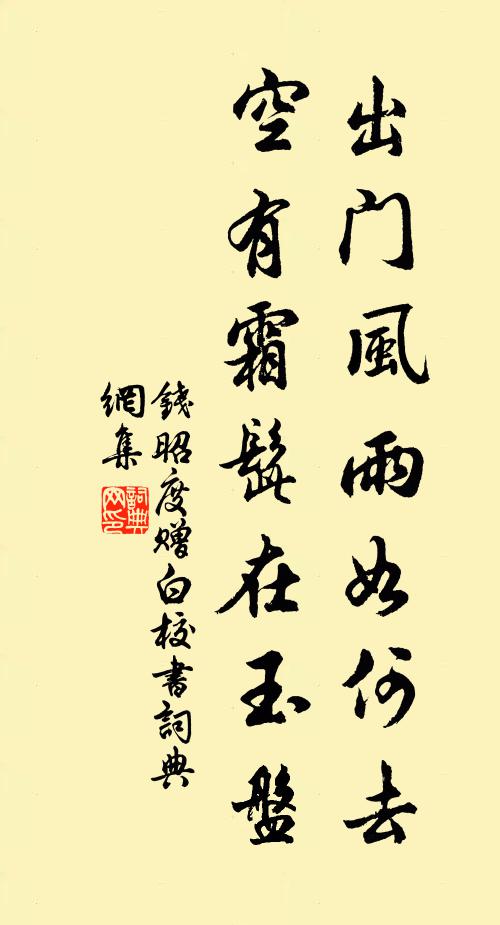 出門風雨如何去
空有霜髭在玉盤
錢昭度贈白校書詞典
網集
詞典
网印